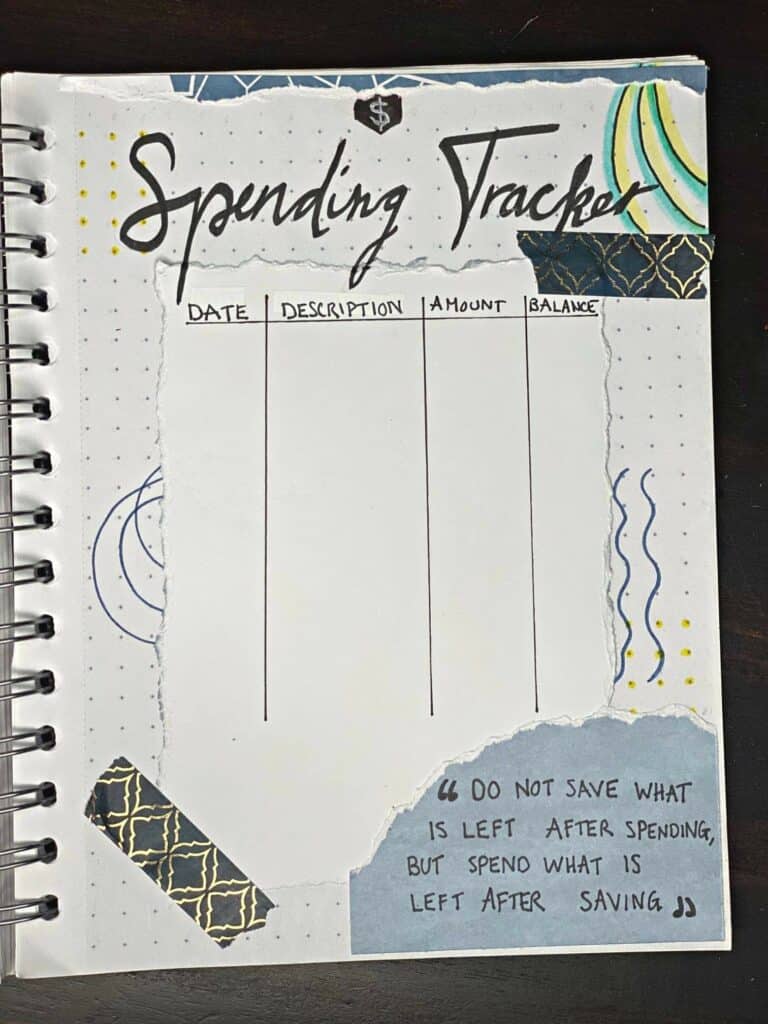 $
Spending Tracker
DATE DESCRIPTION AMOUNT BALANCE
“ DO NOT SAVE WHAT
IS LEFT AFTER SPENDING,
BUT SPEND WHAT IS
LEFT AFTER SAVING „